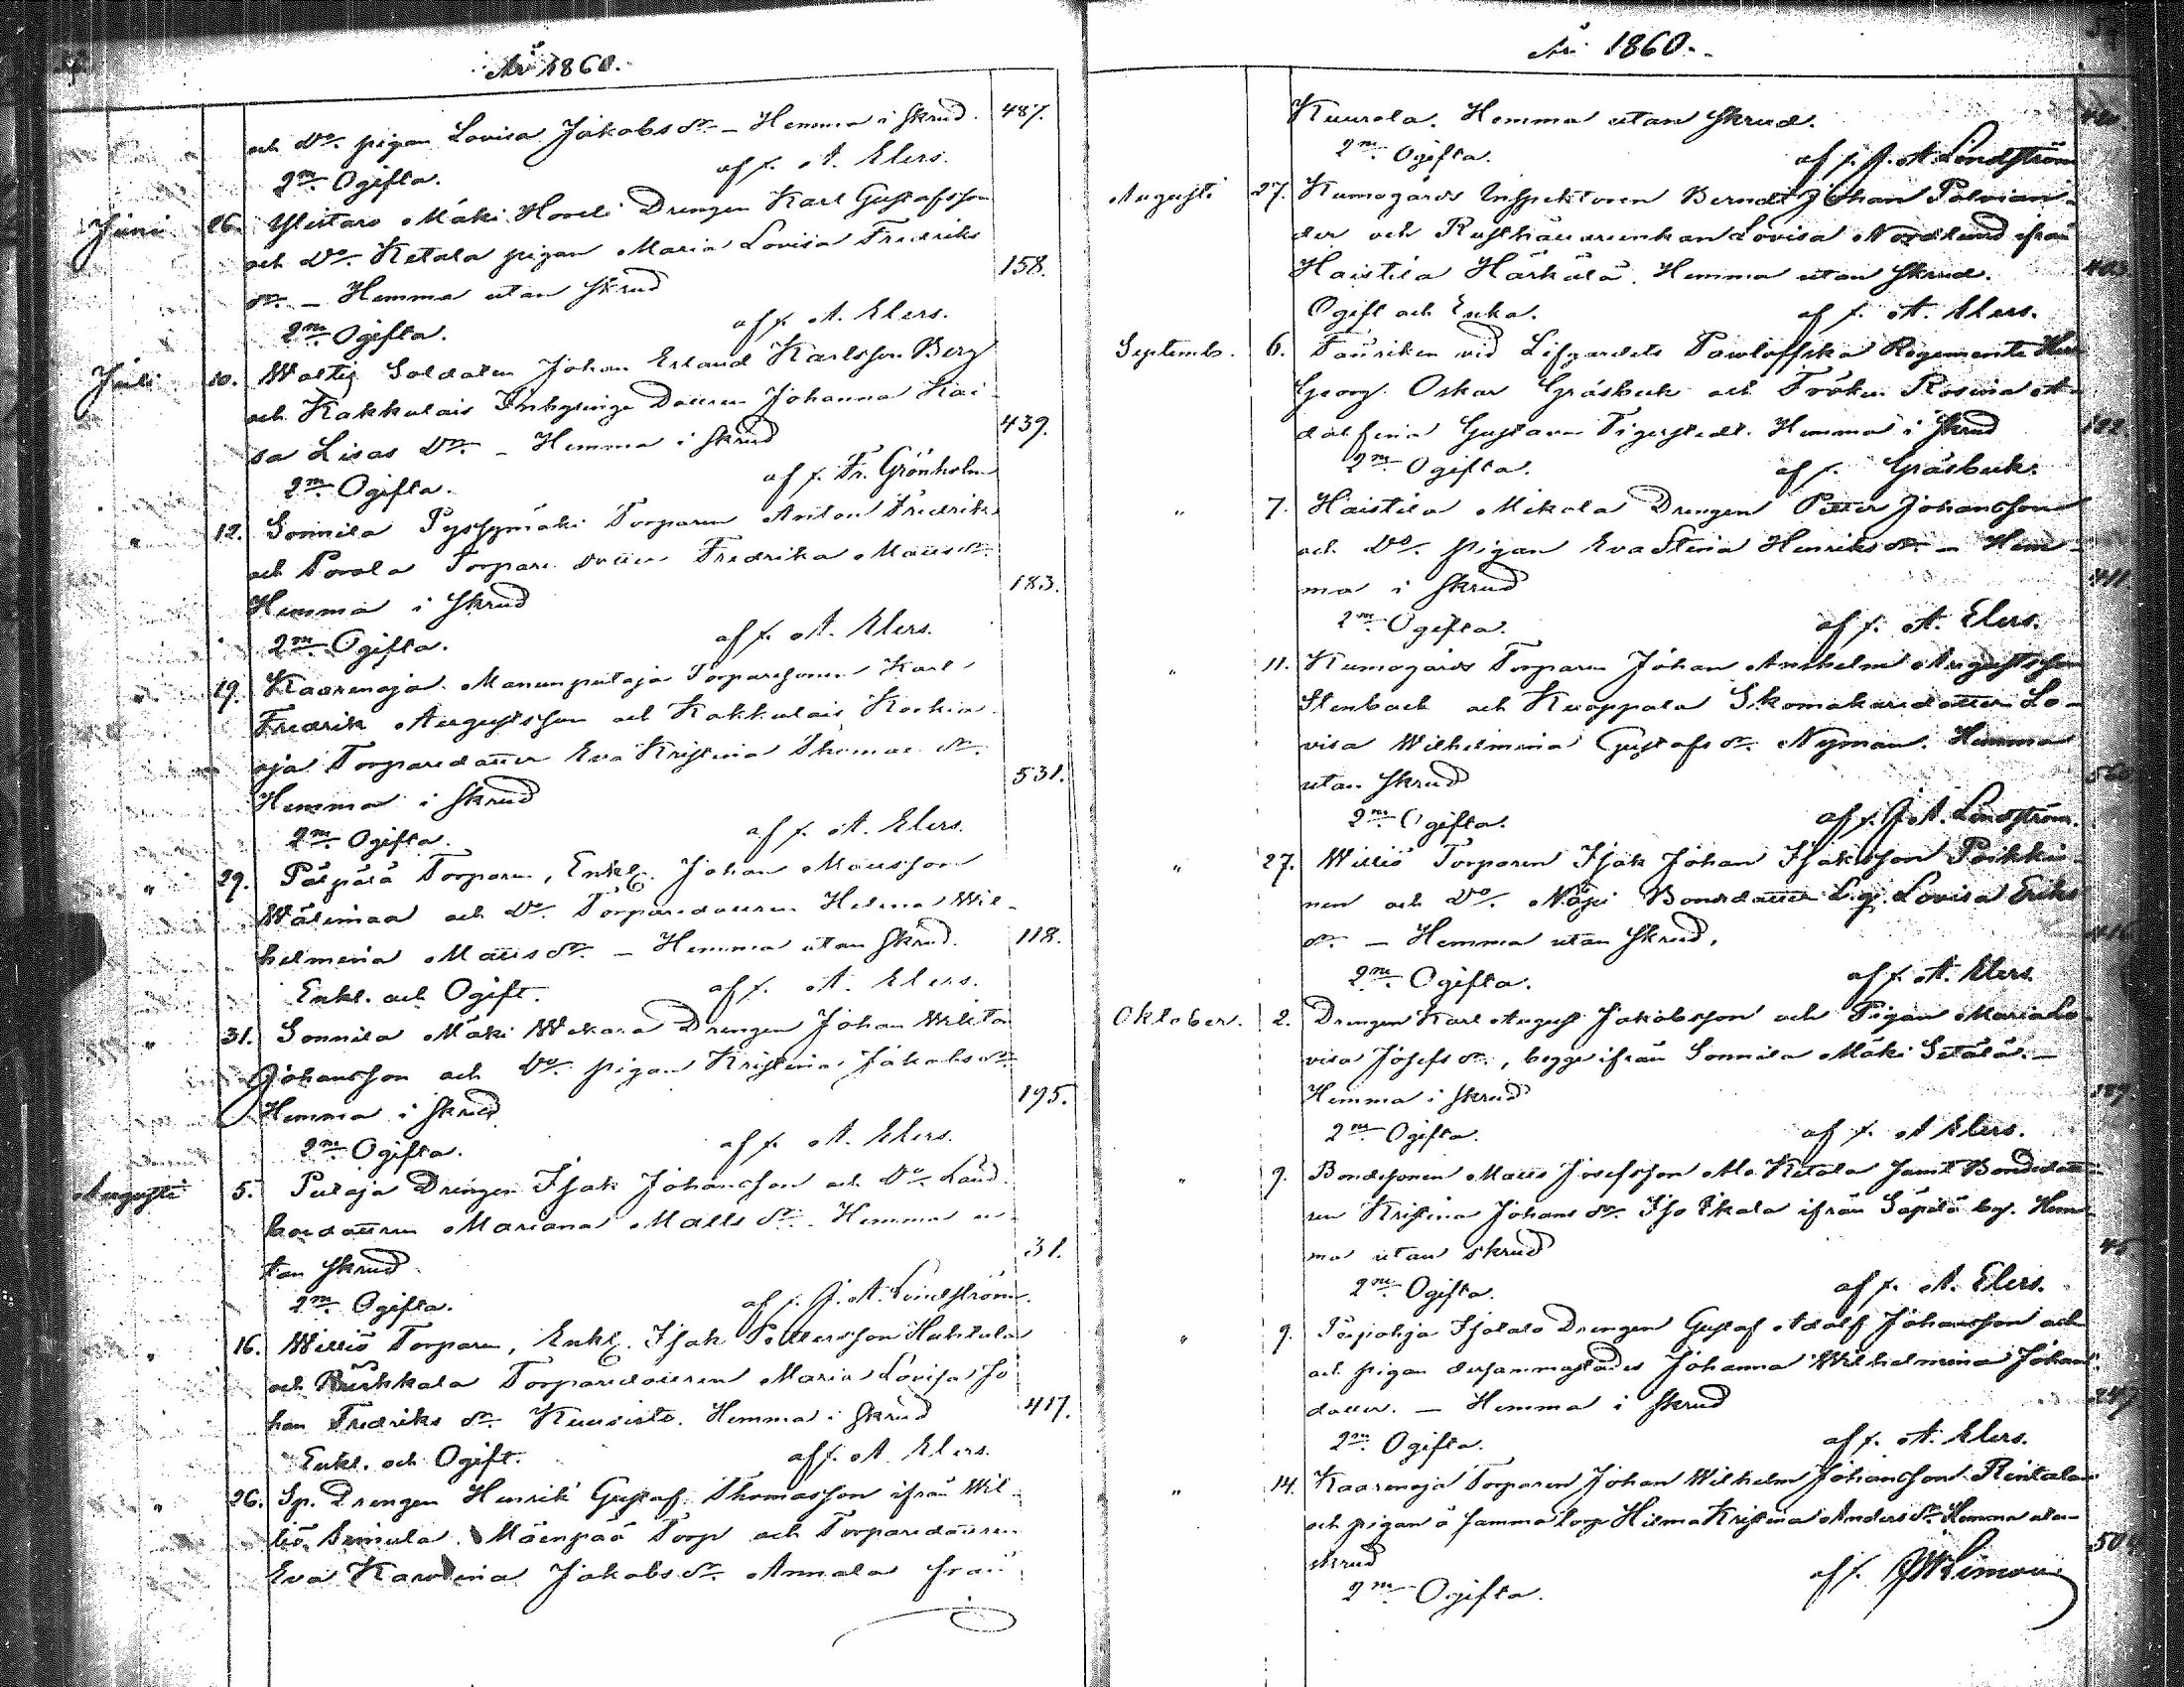 År 1860.
och D:o pigan Lovisa Jakobs dr. – Hemma i skrud. 487.
2:m Ogifta. af f. A. Elers.
Juni 26. Ylistaro Mäki Hoveli Drengen Karl Gustafsson
och D:o Ketala pigan Maria Lovisa Fredriks
dr. – Hemma utan skrud 158.
2:m Ogifta. af f. A. Elers.
Juli 10. Waltig Soldaten Johan Erland Karlsson Berg
och Kakkulais Inhysinge Dottren Johanna Kai-
sa Lisas Dr. – Hemma i skrud 439.
2:m Ogifta. af f. Fr. Grönholm
" 12. Sonnila Pyssymäki Torparen Anton Fredriks
och Torpare dottren Fredrika Matts dr.
Hemma i skrud 183.
2:m Ogifta. af f. A. Elers.
" 19. Kaarenoja Torparesonen Karl
Fredrik Augustsson och Kakkulais
oja Torparedotter Eva Kristina Thomas dr.
Hemma i skrud 531.
2:m Ogifta. af f. A. Elers.
" 29. Päipälä Torparen, Enkl. Johan Mattsson
Wälimaa och D:o Torparedottren Helena Wil-
helmina Matts dr. – Hemma utan skrud. 118.
Enkl. och Ogift. af f. A. Elers.
" 31. Sonnila Mäki Wakara Drengen Johan
Johansson och D:o pigan Kristina Jakobs dr.
Hemma i skrud 195.
2:m Ogifta. af f. A. Elers.
Augusti 5. Putaja Drengen Isak Johansson och D:o Land-
bondottren Mariana Matts dr. Hemma u-
tan skrud 31.
2:m Ogifta. af f. J. A. Lindström.
" 16. Williö Torparen, Enkl. Isak Pettersson Huhtala
och Torparedottren Maria Lovisa Jo
han Fredriks dr. Kuusisto. Hemma i skrud 417.
Enkl. och Ogift. af f. A. Elers.
" 26. Sp. Drengen Henrik Gustaf Thomasson ifrån Wil-
liö Mäenpää Torp och Torparedottren
Eva Karolina Jakobs dr. Annala från
År 1860.
Kuurola. Hemma utan skrud.
2:m Ogifta. af f. J. A. Lindström
Augusti 27. Kumogårds Inspektoren Berndt Johan Polvian-
der och Rusthållarenkan Lovisa Nordlund ifrån
Haistila Härkälä. Hemma utan skrud. 403
Ogift och Enka. af f. A. Elers.
Septemb. 6. Fänriken vid Lifgardets Pawloffska Regemente Herr
Georg Oskar Gråsbeck och Fröken Rosina A-
dolfina Gustava Tigerstedt. Hemma i skrud
2:m Ogifta. af f. Gråsbeck.
" 7. Haistila Mikola Drengen Petter Johansson
och D:o pigan Eva Stina Henriks dr. – Hem-
ma i skrud 411
2:m Ogifta. af f. A. Elers.
" 11. Kumogårds Torparen Johan Anshelm Augustsson
Stenback och Kuoppala Skomakaredotter Lo-
visa Wilhelmina Gustafs dr. Nyman. Hemma
utan skrud 560
2:m Ogifta. af f. J. A. Lindström.
" 27. Williö Torparen Isak Johan Isaksson Poikki-
nen och D:o Näpi Bondedotter Lovisa Eriks
dr. – Hemma utan skrud. 416
2:m Ogifta. af f. A. Elers.
Oktober. 2. Drengen Karl August Jakobsson och Pigan Maria Lo-
visa Josefs dr., begge ifrån Sonnila Mäki Setälä. –
Hemma i skrud 189
2:m Ogifta. af f. A. Elers.
" 7. Bondesonen Matts Josefsson Ala Ketola samt Bondedott-
ren Kristina Johans dr. Iso Ikala ifrån Säpilä by. Hem-
ma utan skrud 45
2:m Ogifta. af f. A. Elers.
" 9. Isotalo Drengen Gustaf Adolf Johansson och
och pigan dersammastädes Johanna Wilhelmina Johans
dotter. – Hemma i skrud 247
2:m Ogifta. af f. A. Elers.
" 14. Kaarenoja Torparen Johan Wilhelm Johansson Rintala
och pigan å samma torp Hilma Kristina Anders dr. Hemma utan
skrud
2:m Ogifta. af f.